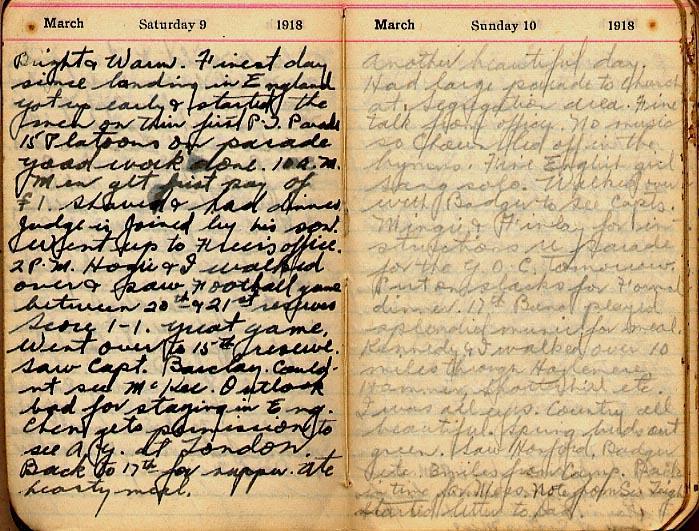 March Saturday 9 1918
Bright & Warm. Finest day
since landing in England
got up early & started the
men on thin first P.T. Parade
15 Platoons on parade
good work done. 10 A.M.
Men get first pay of
£1. Shaved & had dinner
Judge is joined by his son.
Went up to office.
2 P.M. Hogie & I walked
over & saw Football game
between 20th & 21st reserves
Score 1-1. great game,
Went over to 15th reserve.
Saw Capt. Barclay. Could-
nt see McKee. Outlook
bad for staging in Eng.
Chem gets permission to
see A.G. at London
Back to 17th for supper. Ate
hearty meal.
March Sunday 10 1918
Another beautiful day.
Had large parade to Church
at Segregation area. Fine
talk from officer. No music
so led off in the
hymns. Fine English girl
sang solo. Walked over
with Badger to see Capts.
Mingie & Finlay for in-
structions re parade
for the G.O.C. tomorrow.
Put on slacks for Formal
dinner. 17th Band played
splendid music for meal.
Kennedy & I walked over 10
miles through Haslemere,
etc.
I was all eyes. Country all
beautiful. Spring buds out
green. Saw Badger
Site. 3 miles from Camp. Back
in time for Mess. Note from
Started letter to Dad.